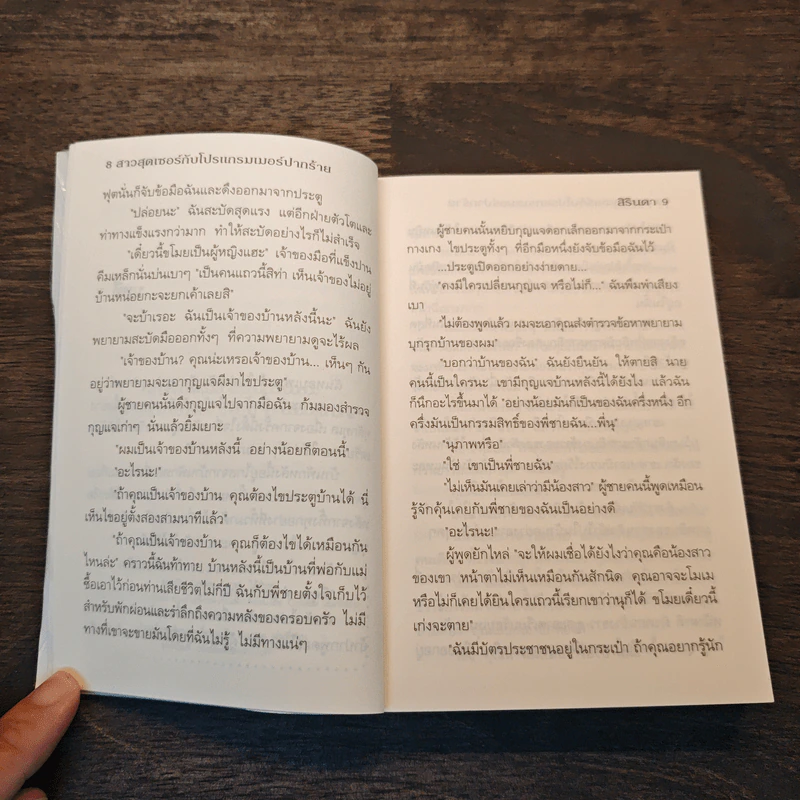 8 สาวสุดเซอร์กับโปรแกรมเมอร์ปากร้าย
ฟุตนั่นก็จับข้อมือฉันและดึงออกมาจากประตู
"ปล่อยนะ" ฉันสะบัดสุดแรง แต่อีกฝ่ายตัวโตและ
ท่าทางแข็งแรงกว่ามาก ทำให้สะบัดอย่างไรก็ไม่สำเร็จ
"เดี๋ยวนี้ขโมยเป็นผู้หญิงแฮะ" เจ้าของมือที่แข็งปาน
คีมเหล็กนั่นบ่นเบาๆ "เป็นคนแถวนี้สิท่า เห็นเจ้าของไม่อยู่
บ้านหน่อยกะจะยกเค้าเลยสิ"
"จะบ้าเรอะ ฉันเป็นเจ้าของบ้านหลังนี้นะ" ฉันยัง
พยายามสะบัดมือออกทั้งๆ ที่ความพยายามดูจะไร้ผล
"เจ้าของบ้าน? คุณน่ะเหรอเจ้าของบ้าน... เห็นๆ กัน
อยู่ว่าพยายามจะเอากุญแจผีมาไขประตู"
ผู้ชายคนนั้นดึงกุญแจไปจากมือฉัน ก้มมองสำรวจ
กุญแจเก่าๆ นั่นแล้วยิ้มเยาะ
"ผมเป็นเจ้าของบ้านหลังนี้ อย่างน้อยก็ตอนนี้"
"อะไรนะ!"
"ถ้าคุณเป็นเจ้าของบ้าน คุณต้องไขประตูบ้านได้ นี่
เห็นไขอยู่ตั้งสองสามนาทีแล้ว"
"ถ้าคุณเป็นเจ้าของบ้าน คุณก็ต้องไขได้เหมือนกัน
ไหนล่ะ" คราวนี้ฉันท้าทาย บ้านหลังนี้เป็นบ้านที่พ่อกับแม่
ซื้อเอาไว้ก่อนท่านเสียชีวิตไม่กี่ปี ฉันกับพี่ชายตั้งใจเก็บไว้
สำหรับพักผ่อนและรำลึกถึงความหลังของครอบครัว ไม่มี
ทางที่เขาจะขายมันโดยที่ฉันไม่รู้ ไม่มีทางแน่ๆ
สิรินดา 9
ผู้ชายคนนั้นหยิบกุญแจดอกเล็กออกมาจากกระเป๋า
กางเกง ไขประตูทั้งๆ ที่อีกมือหนึ่งยังจับข้อมือฉันไว้
...ประตูเปิดออกอย่างง่ายดาย...
"คงมีใครเปลี่ยนกุญแจ หรือไม่ก็..." ฉันพึมพำเสียง
เบา
"ไม่ต้องพูดแล้ว ผมจะเอาคุณส่งตำรวจข้อหาพยายาม
บุกรุกบ้านของผม"
"บอกว่าบ้านของฉัน" ฉันยังยืนยัน ให้ตายสิ นาย
คนนี้เป็นใครนะ เขามีกุญแจบ้านหลังนี้ได้ยังไง แล้วฉัน
ก็นึกอะไรขึ้นมาได้ "อย่างน้อยมันก็เป็นของฉันครึ่งหนึ่ง อีก
ครึ่งมันเป็นกรรมสิทธิ์ของพี่ชายฉัน...พี่นุ"
"นุภาพหรือ"
"ใช่ เขาเป็นพี่ชายฉัน"
"ไม่เห็นมันเคยเล่าว่ามีน้องสาว" ผู้ชายคนนี้พูดเหมือน
รู้จักคุ้นเคยกับพี่ชายของฉันเป็นอย่างดี
"อะไรนะ!"
ผู้พูดยักไหล่ "จะให้ผมเชื่อได้ยังไงว่าคุณคือน้องสาว
ของเขา หน้าตาไม่เห็นเหมือนกันสักนิด คุณอาจจะโมเม
หรือไม่ก็เคยได้ยินใครแถวนี้เรียกเขาว่านุก็ได้ ขโมยเดี๋ยวนี้
เก่งจะตาย"
"ฉันมีบัตรประชาชนอยู่ในกระเป๋า ถ้าคุณอยากรู้นัก